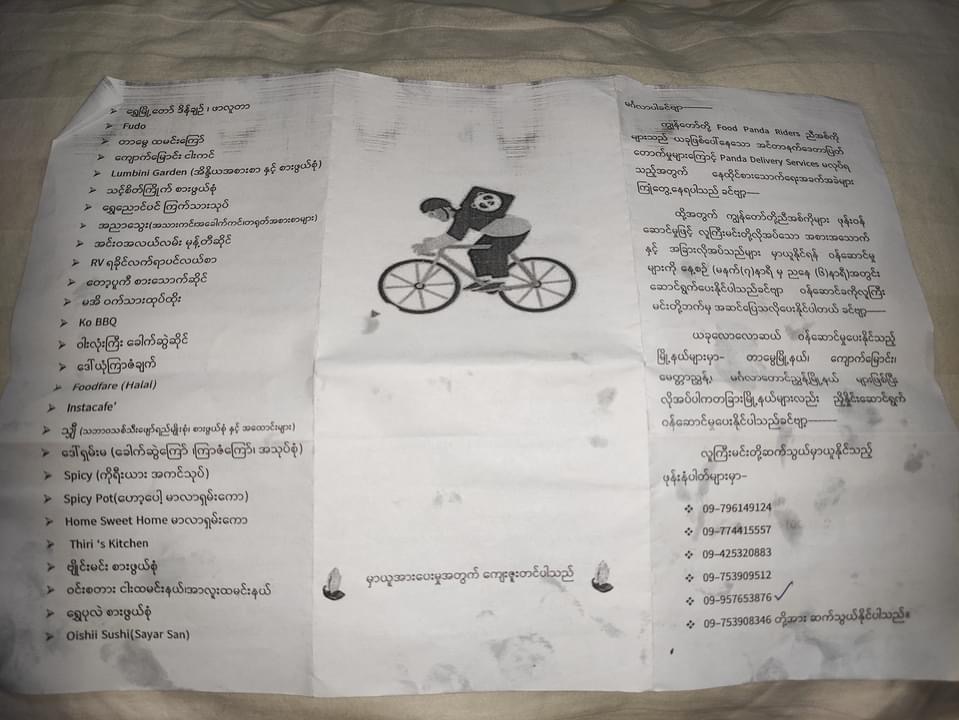 ရွှေမြို့တော် ဒိန်ချဉ် ၊ ဖာလူတာ
Fudo
တာမွေ ထမင်းကြော်
ကျောက်မြောင်း ငါးကင်
Lumbini Garden (အိန္ဒိယအစားစာ နှင့် စားဖွယ်စုံ)
သင့်စိတ်ကြိုက် စားဖွယ်စုံ
ရွှေညောင်ပင် ကြက်သားသုပ်
အညာသွေး(အသားကင်အခေါက်ကင်၊တရုတ်အစားစာများ)
အင်းဝအလယ်လမ်း မုန့်တီဆိုင်
RV ရခိုင်လက်ရာပင်လယ်စာ
တော့ပူကီ စားသောက်ဆိုင်
မအိ ဝက်သားထုပ်ထိုး
Ko BBQ
ဝါးလုံးကြီး ခေါက်ဆွဲဆိုင်
ဒေါ်ယုံကြာဇံချက်
Foodfare (Halal)
Instacafe'
(သဘာဝသစ်သီးဖျော်ရည်မျိုးစုံ၊ စားဖွယ်စုံ နှင့် အထောင်းများ)
ဒေါ်ရှမ်းမ (ခေါက်ဆွဲကြော် ၊ကြာဇံကြော်၊ အသုပ်စုံ)
Spicy (ကိုရီးယား အကင်သုပ်)
Spicy Pot(ဟော့ပေါ့ မာလာရှမ်းကော)
Home Sweet Home မာလာရှမ်းကော
Thiri 's Kitchen
ဗျိုင်းမင်း စားဖွယ်စုံ
ဝင်းစတား ငါးထမင်းနယ်၊အာလူးထမင်းနယ်
ရွှေပုလဲ စားဖွယ်စုံ
Oishii Sushi(Sayar San)
မှာယူအားပေးမှုအတွက် ကျေးဇူးတင်ပါသည်
မင်္ဂလာပါခင်ဗျာ
ကျွန်တော်တို့ Food Panda Riders ညီအစ်ကို
များသည် ယခုဖြစ်ပေါ်နေသော အင်တာနက်ဒေတာပြတ်
တောက်မှုများကြောင့် Panda Delivery Services မလုပ်ရ
သည့်အတွက် နေထိုင်စားသောက်ရေးအခက်အခဲများ
ကြုံတွေ့နေရပါသည် ခင်ဗျာ
ထို့အတွက် ကျွန်တော်တို့ညီအစ်ကိုများ ဖုန်းဝန်
ဆောင်မှုဖြင့် လူကြီးမင်းတို့လိုအပ်သော အစားအသောက်
နှင့် အခြားလိုအပ်သည်များ မှာယူနိုင်ရန် ဝန်ဆောင်မှု
များကို နေ့စဉ် (မနက်(၇)နာရီ မှ ညနေ (၆)နာရီ)အတွင်း
ဆောင်ရွက်ပေးနိုင်ပါသည်ခင်ဗျာ ဝန်ဆောင်ခကိုလူကြီး
မင်းတို့ဘက်မှ အဆင်ပြေသလိုပေးနိုင်ပါတယ် ခင်ဗျာ
ယခုလောလောဆယ် ဝန်ဆောင်မှုပေးနိုင်သည့်
မြို့နယ်များမှာ– တာမွေမြို့နယ်၊ ကျောက်မြောင်း၊
မေတ္တာညွန့်၊ မင်္ဂလာတောင်ညွန့်မြို့နယ် များဖြစ်ပြီး
လိုအပ်ပါကတခြားမြို့နယ်များလည်း ညှိနှိုင်းဆောင်ရွက်
ဝန်ဆောင်မှုပေးနိုင်ပါသည်ခင်ဗျာ
လူကြီးမင်းတို့ဆက်သွယ်မှာယူနိုင်သည့်
ဖုန်းနံပါတ်များမှာ–
09–796149124
09–774415557
09–425320883
09–753909512
09–957653876
09–753908346 တို့အား ဆက်သွယ်နိုင်ပါသည်။